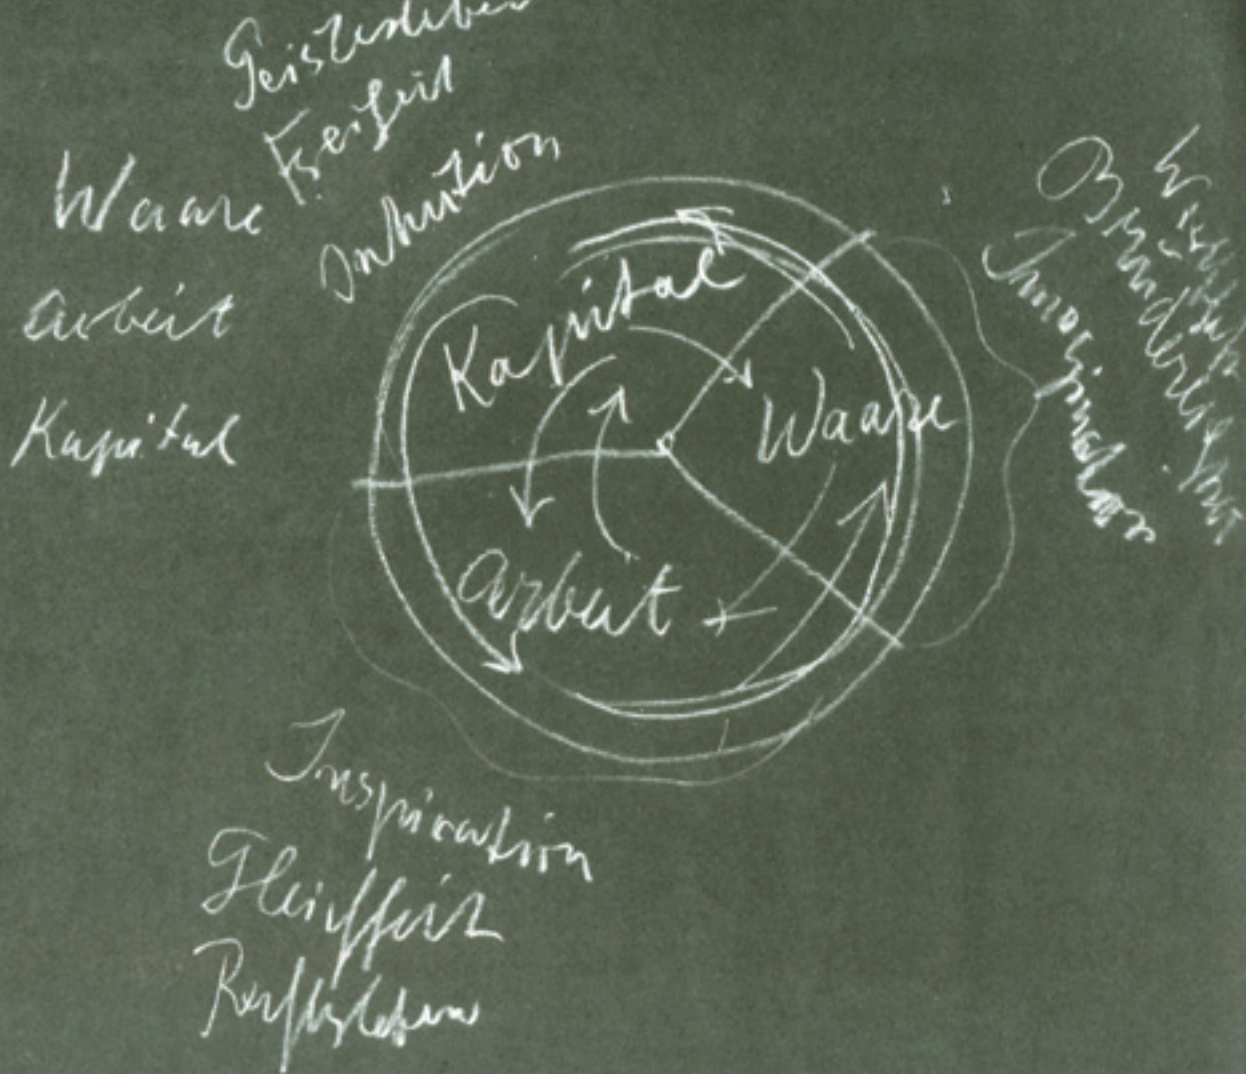 Geistesleben
Freiheit
Intuition
Waare
Arbeit
Kapital
Kapital
Waare
Arbeit
Wirtschaft
Brüderlichkeit
Imagination
Inspiration
Gleichheit
Rechtsleben